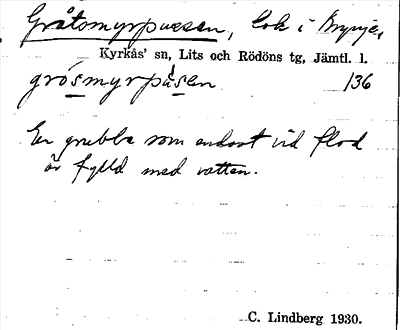 Gråtsmyrpussen, lok i Brynje,
Kyrkås' sn, Lits och Rödöns tg, Jämtl. l.
grósmyrpùsen 136
En grubba som endast vid flod
är fylld med vatten.
C. Lindberg 1930.